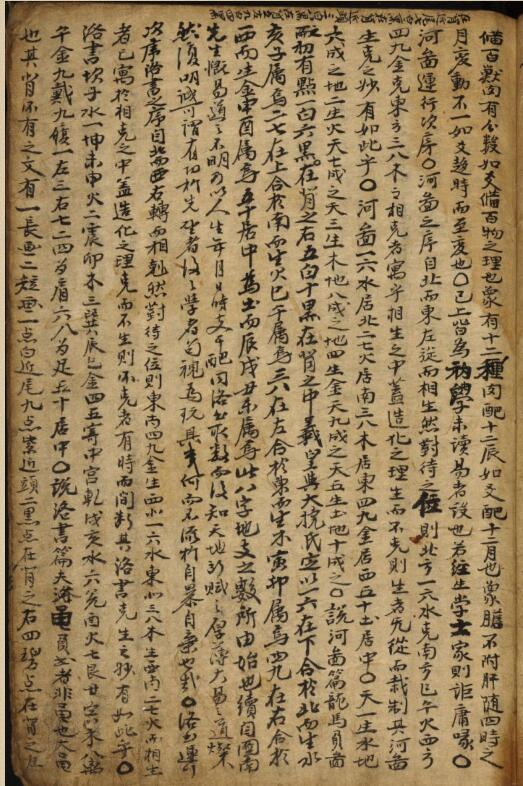 備百獸肉有分數如爻備百物之理也象有十二種肉配十二辰如爻配十二月也象膽不附肝隨四時之
月變動不一如爻趨時而至變也〇已上皆為初學未讀易者設也若經生學士家則詎庸喙〇
河啚運行次序〇河啚之序自北而東左旋而相生然對待之位則北方一六水克南方二七火西方
四九金克東方三八木之相克者寓乎相生之中蓋造化之理生而不克則生者無從而裁制其河啚
生克之妙有如此乎〇河啚一六水居北二七火居南三八木居東四九金居西五十土居中〇天一生水地
六成之地二生火天七成之天三生木地八成之地四生金天九成之天五生土地十成之〇說河啚篇龍馬負啚
初有點一白六黑在背之右五白十黑在背之中羲皇與大撓氏定以一六在下合於北而生水
亥子属焉二七在上合於南而生火巳午属焉三八在左合於東而生木寅卯属焉四九在右合於
西而生金申酉属焉五十居中為土而辰戌丑未属焉此八字地支之數所由始也
先生慨易道之不明而以人生年月日時支干配河洛出取數而後知天地所賦之厚薄大易之道燦
然復明誠可謂有功於先聖者後之學者苟視為玩具
次序洛書之序自北而西右轉而相剋然對待之位則東南四九金生西北一六水東北三八木生西南二七火而相生
者已寓於相克之中蓋造化之理克而不生則所克者有時而間断其洛書克生之妙有如此乎〇
洛書坎子水一坤未申火二震卯木三巽辰巳金四五寄中宮乾戌亥水六兌酉火七艮丑寅木八離
午金九戴九履一左三右七二四為肩六八為足五十居中〇說洛書篇夫洛黽負書者非黽也大黽
也其背所有之文有一長畫二短畫一点白近尾九点紫近頭二黑点在背之右四碧点在背之左